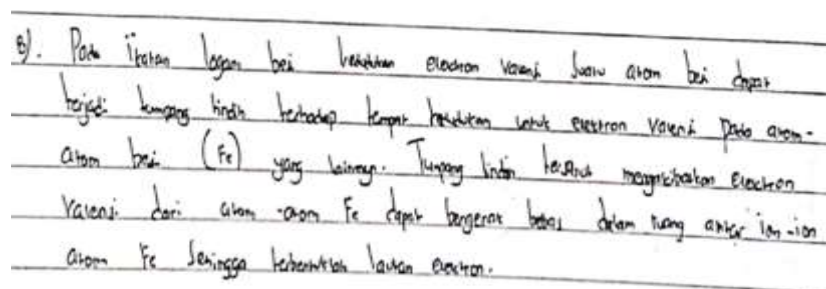 8). Pada ikatan logam besi kedudukan elektron valensi suatu atom besi dapat
terjadi tumpang tindih terhadap tempat kedudukan untuk elektron valensi pada atom-
atom besi (Fe) yang lainnya. Tumpang tindih tersebut mengakibatkan electron
valensi dari atom-atom Fe dapat bergerak bebas dalam ruang antar ion-ion
atom Fe sehingga terbentuklah lautan electron.